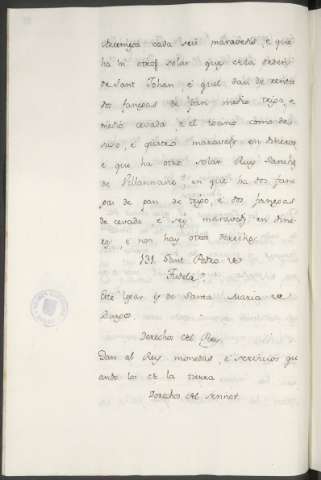 cada seis maravedis, e que
ha hi otro solar que
de Sant Johan e quel dan de renta
dos fanegas de pan medio trigo, e
medio cevada, e el conno como de
suso, e quatro maravedis en dineros
e que ha otro solar Ruy Sanchez
de Villannane, en que ha dos fane
gas de pan de trigo, e dos fanegas
de cevada, e seys maravedis en dine
ros, e non hay otros derechos.
131. Sant Pedro de
Fudela.
Este logar es de Santa Maria de
Burgos.
Derechos del Rey
Dan al Rey monedas, e servicios qu
ando los de la tierra
Derechos del Sennor